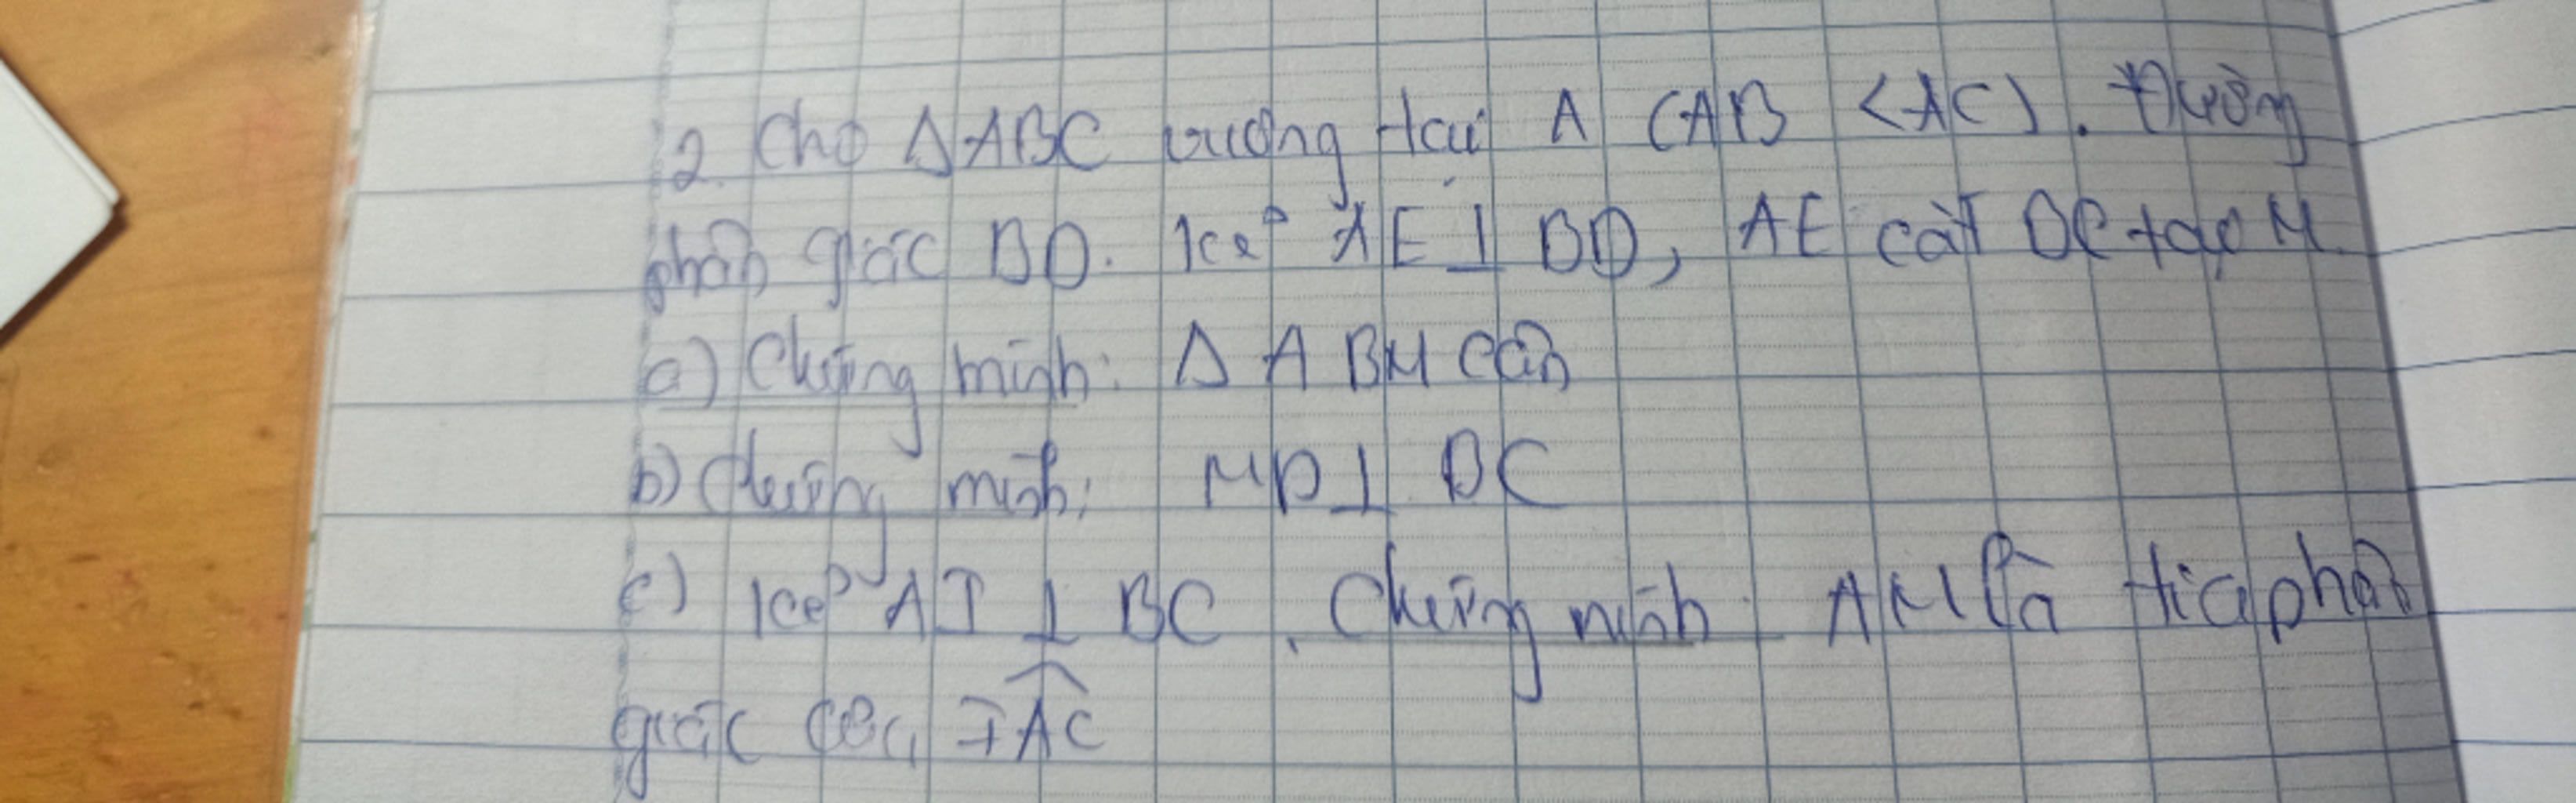 2. Cho ΔABC vuông tại A (AB < AC). Đường
phân giác BD. Kẻ AE ⊥ BD, AE cắt BC tại M.
a) Chứng minh: Δ ABM cân
b) Chứng minh: MD ⊥ BC
c) Kẻ AI ⊥ BC. Chứng minh AM là tia phân
giác của IAC